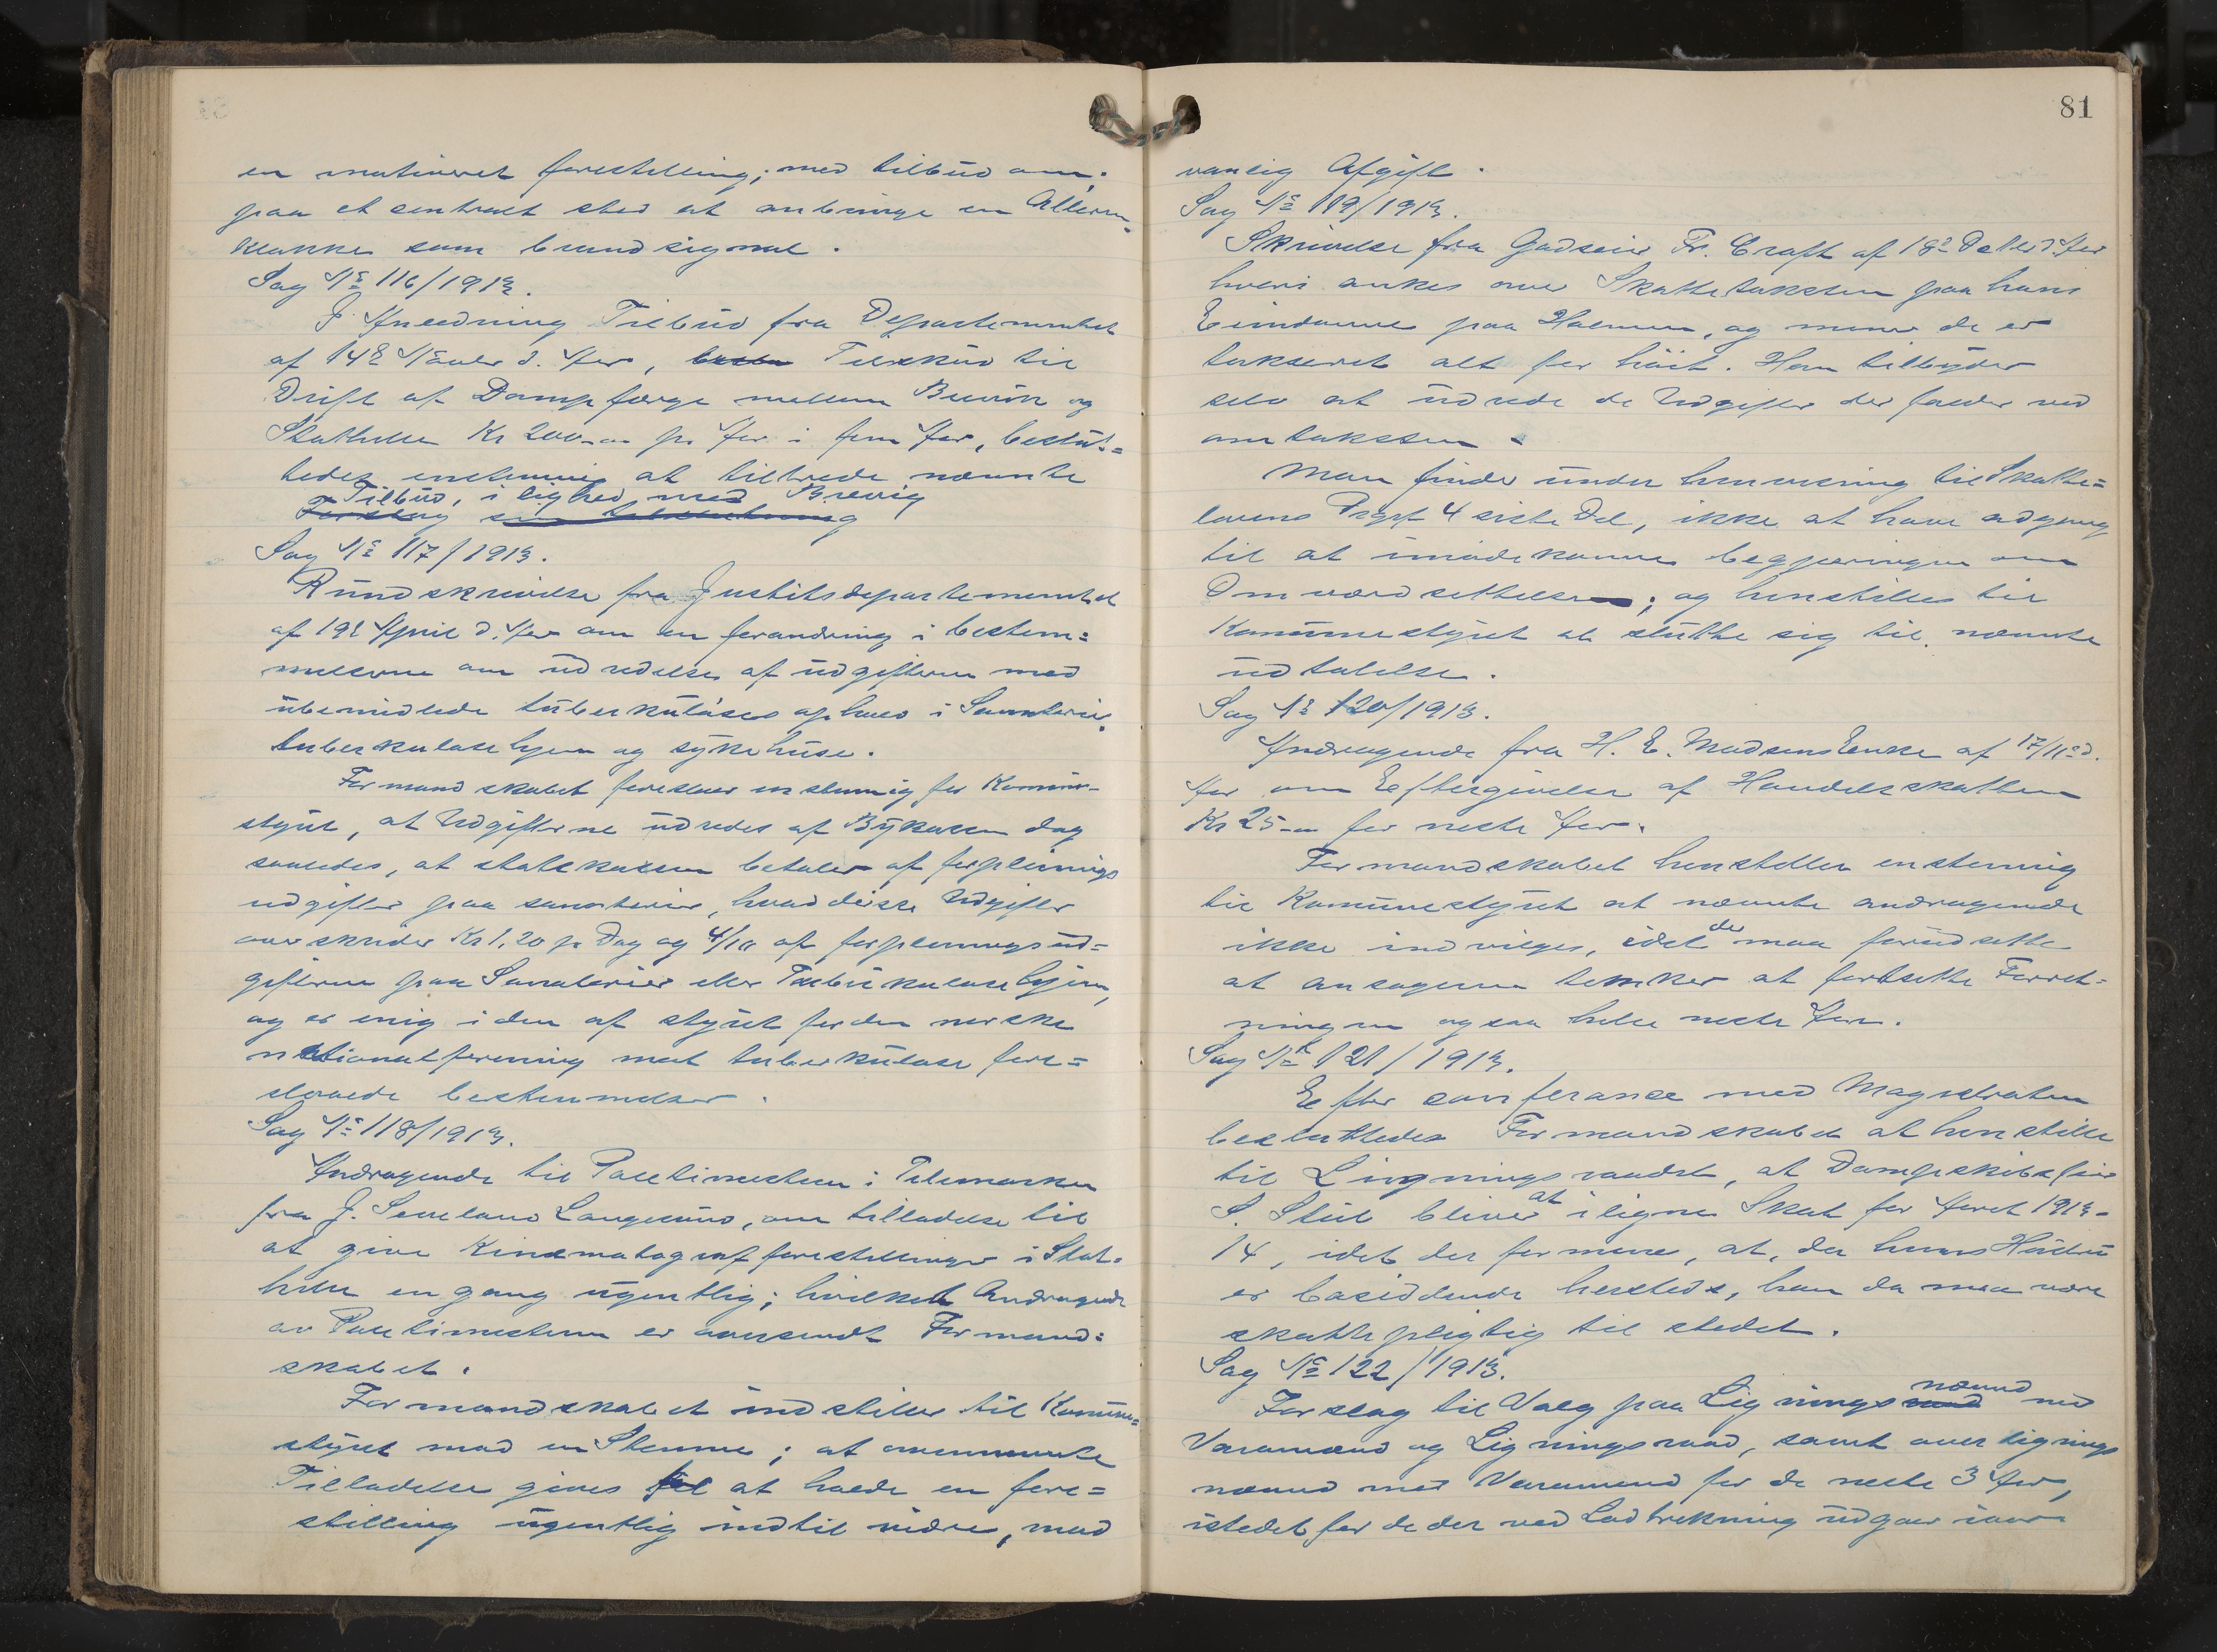 en motiveret forestilling; med tilbud om,
paa et sentralt sted at anbringe en Allarm
klokke som brandsignal.
Sag No 116/1913.
I Anledning Tilbud fra Departementet
af 14de Novbr d. Aar, Tilskud til
Drift af Dampfærge mellem Brevik og
Stathelle Kr 200.00 pr Aar i fem Aar, beslut=
tedes enstemmig at tiltræde nævnte
Tilbud, i lighed med Brevig
Forslag
Sag No 117/1913.
Rundskrivelse fra Justitsdepartementet
af 19de April d. Aar om en forandring i bestem=
melserne om udredelse af udgifterne med
ubemidlede tuberkuløses ophold i Sanatorier,
tuberkulosehjem og sykehuse.
Formandskabet foreslaar enstemmig for Komune-
styret, at Udgifterne udredes af Bykassen dog
saaledes, at statskassen betaler af forpleinings
udgifter paa sanatorier, hvad disse Udgifter
overskrider Kr 1,20 pr Dag og 4/10 af forpleiningsud=
gifterne paa Sanatorier eller Tuberkulosehjem,
og er enig i den af styret for den norske
nationalforening mot tuberkulose fore=
slaaede bestemmelser.
Sag No 118/1913.
Andragende til Politimesteren i Telemarken
fra J. Langesund, om tilladelse til
at give Kinematografforestillinger i Stat=
helle en gang ugentlig; hvilket Andragende
av Politimesteren er oversendt Formand=
skabet.
Formandskabet indstiller til Komune=
styret mod en Stemme; at ovennævnte
Tilladelse gives til at holde en fore=
stilling ugentlig indtil vidre, mod
81
vanlig Afgift.
Sag No 119/1913.
Skrivelse fra Godseier Fr. Croft af 18de Oktbr d. Aar
hvori ankes over Skattetaksten paa hans
Eiendomme paa Holmen, og mener de er
takseret alt for høit. Han tilbyder
selv at udrede de Udgifter der falder ved
omtaksten.
Man finder under henvisning til Skatte=
lovens Prgrf 4 siste Del, ikke at have adgang
til at imødekomme begjæringen om
Omværdsettelse; og henstilles til
Komunestyret at slutte sig til nævnte
udtalelse.
Sag No 120/1913.
Andragende fra H. E. Madsens Enke af 17/11 d.
Aar om Eftergivelse af Handelsskatten
Kr 25.00 for neste Aar.
Formandskabet henstiller enstemmig
til Komunestyret at nævnte andragende
ikke indvilges, idet de maa forudsette
at ansøgeren tenker at fortsette Forret=
ningen ogsaa hele neste Aar.
Sag No 121/1913.
Efter conferanse med Magistraten
besluttedes Formandskabet at henstille
til Ligningsraadet, at Dampskibsfører
S. Stub bliver at iligne Skat for Aaret 1913-
14, idet der formenes, at, da hans Hustru
er bosiddende hersteds, han da maa være
skattepligtig til stedet.
Sag No 122/1913.
Forslag til Valg paa Lignings nævnd med
Varamænd og Ligningsraad, samt overlignings
nævnd med Varamænd for de neste 3 Aar,
istedet for de der ved Lodtrekning udgaar iaar